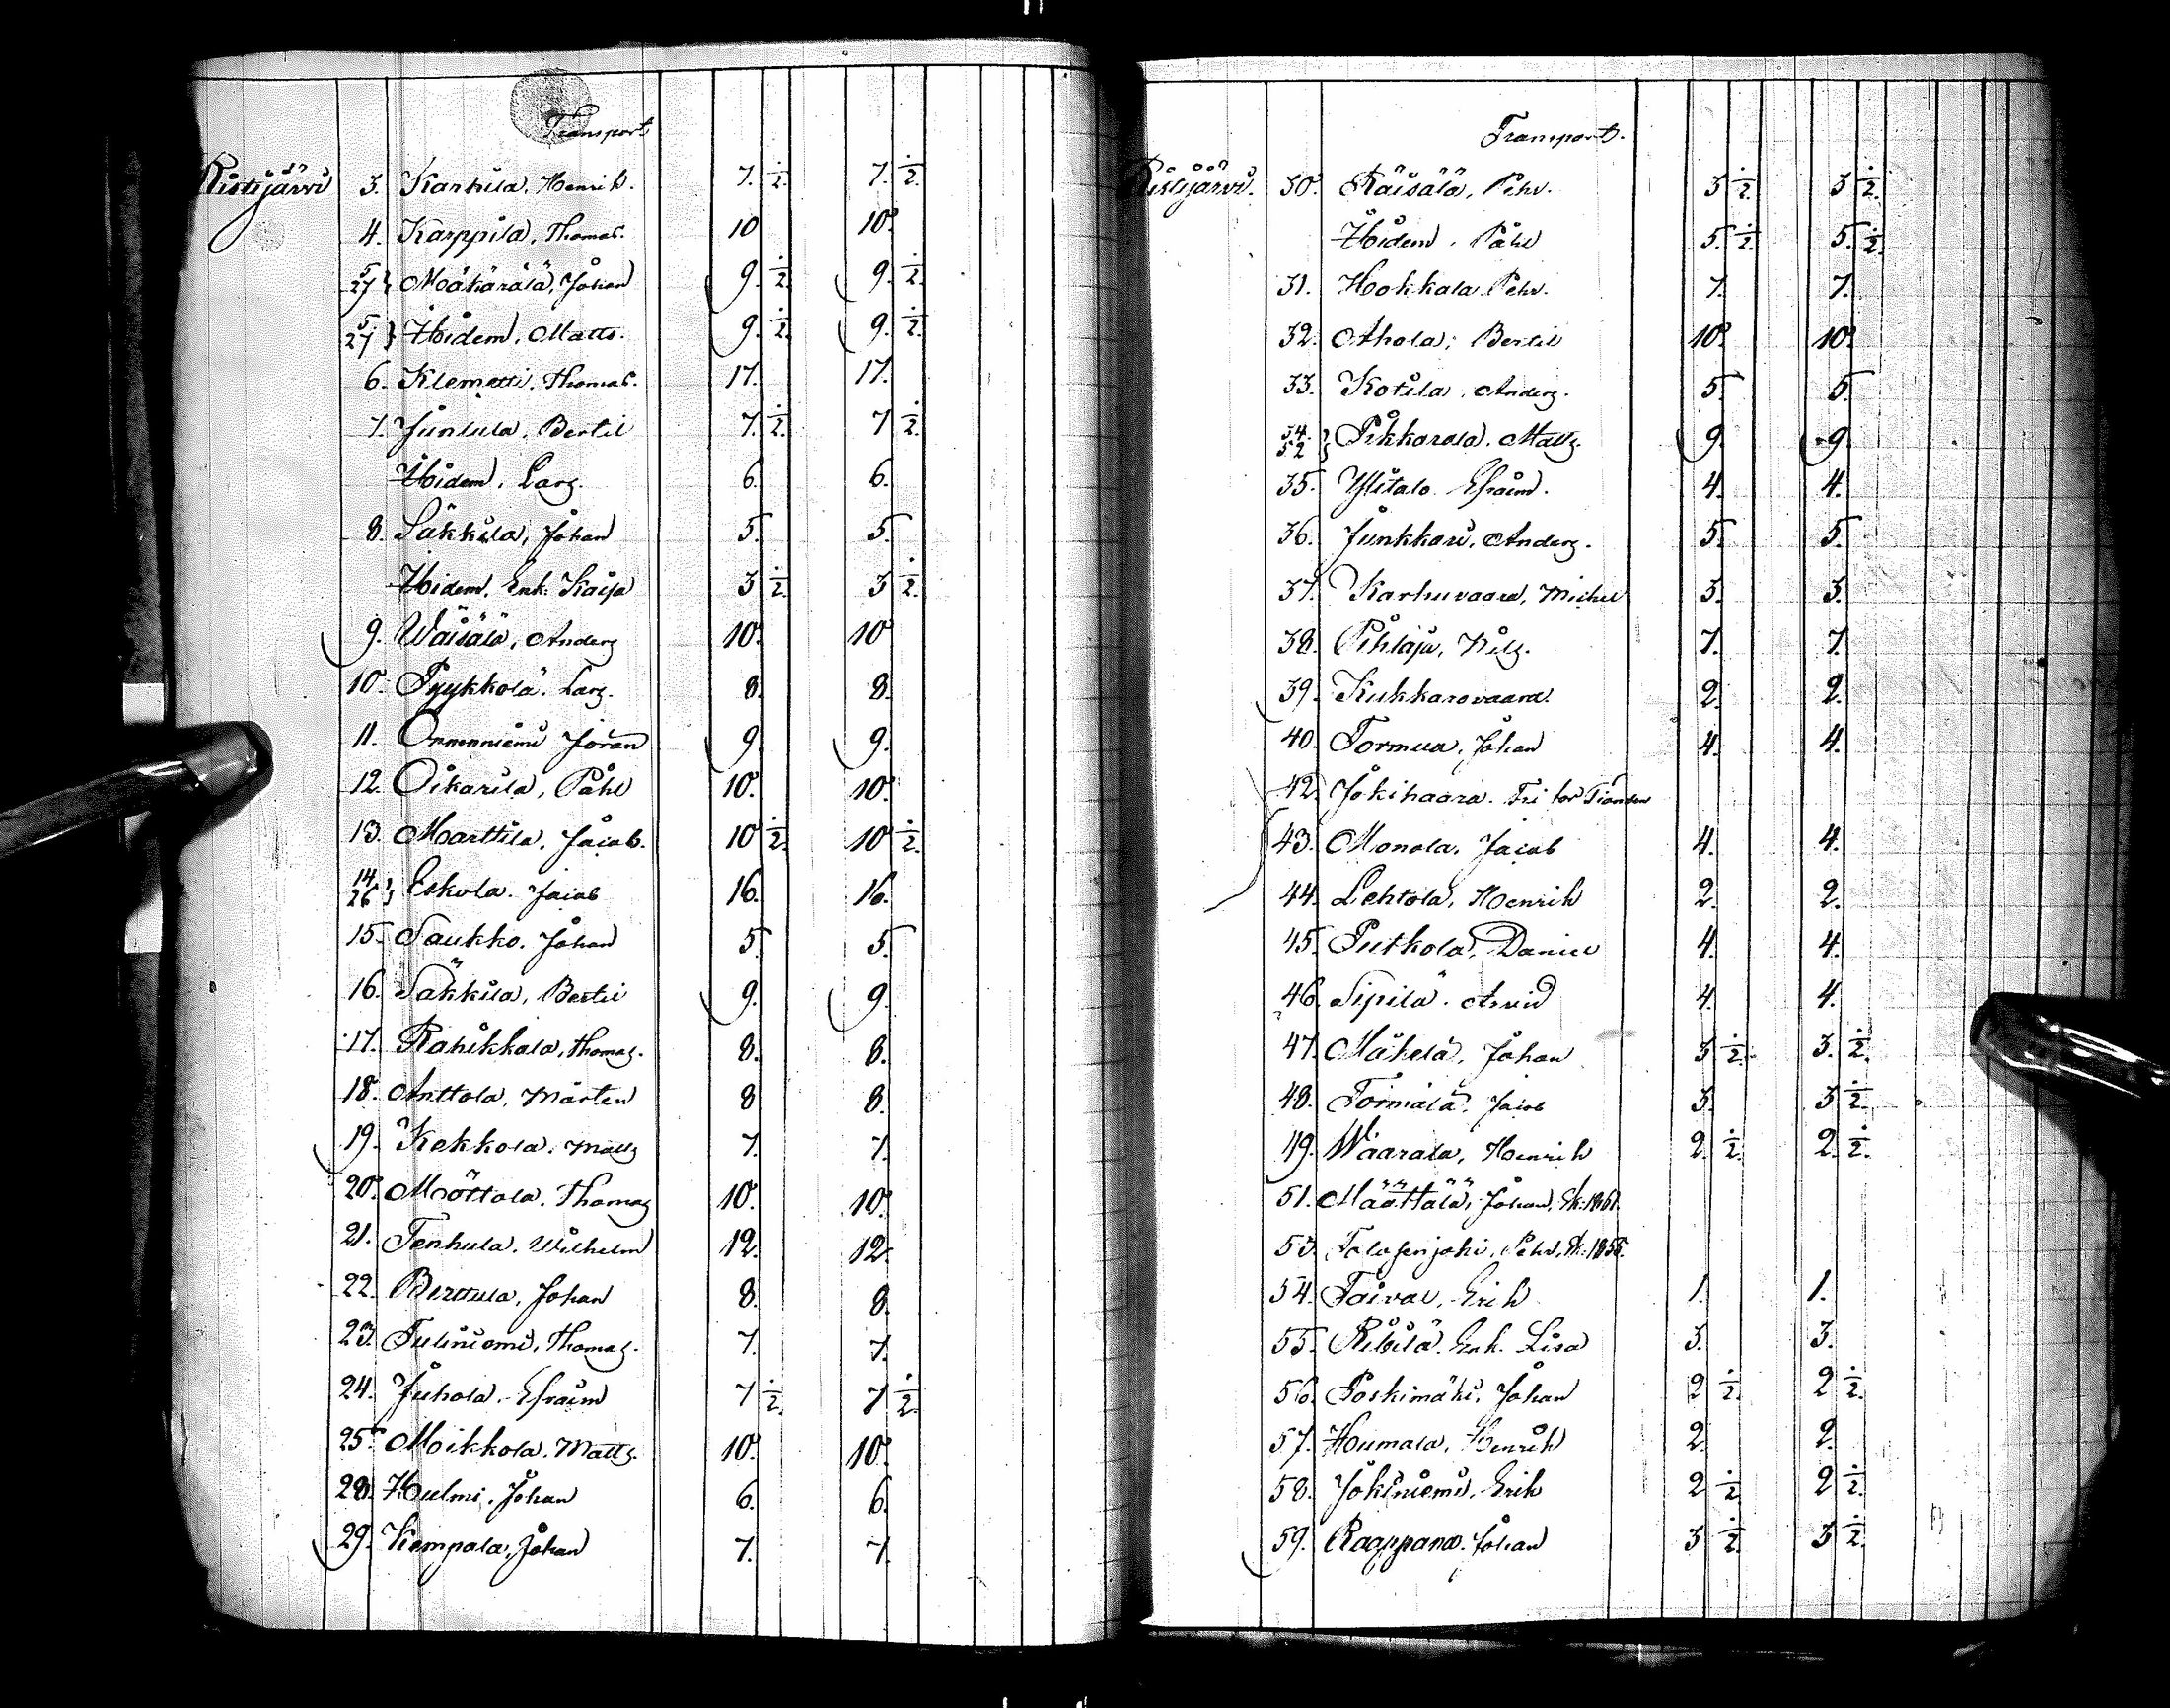 Transport
Ristijärvi 3. Karhila, Henrik. 7. ½. 7. ½.
4. Karppila, Thomas. 10 10.
5 27 } Määhärälä, Johan 9. ½. 9. ½.
5 27 } Ibidem, Matts. 9. ½. 9. ½.
6. Klemetti, Thomas. 17. 17.
7. Juntula, Bertil 7. ½. 7 ½.
Ibidem, Lars. 6. 6.
8. Säkkilä, Johan 5. 5.
Ibidem, Enk. Kaisa 3 ½. 3 ½.
9. Wäisälä, Anders 10. 10
10. Pyykkölä, Lars. 8. 8.
11. Johan 9. 9.
12. Oikarila, Påhl 10. 10.
13. Marttila, Jacob. 10 ½. 10 ½.
14 26 } Eskola. Jacob 16. 16.
15. Saukko. Johan 5. 5.
16. Säkkilä, Bertil 9. 9.
17. Rahikkala, Thomas. 8. 8.
18. Anttola, Mårten 8 8.
19. Kekkola. Matts 7. 7.
20. Möttölä. Thomas 10. 10.
21. Tenhula. Wilhelm 12. 12.
22. Berttula, Johan 8. 8.
23. Tuliniemi, Thomas. 7. 7.
24. Juhola. Efraim 7 ½. 7 ½.
25. Moikkola. Matts. 10. 10.
28. Hulmi. Johan 6. 6.
29. Kempala. Johan 7. 7.
Transport.
Ristijärvi. 30. Räisälä, Pehr. 3 ½. 3 ½.
Ibidem. Påhl 5. ½. 5. ½.
31. Hokkala. Pehr. 7. 7.
32. Ahola, Bertil 10. 10.
33. Kotila. Anders. 5 5
34. 52 } Pikkarala. Matts 9. 9.
35. Ylitalo. Efraim. 4. 4.
36. Junkkari, Anders. 5. 5.
37. Karhuvaara, Michel 3. 3.
38. Pihlaja, Nils. 7. 7.
39. Kukkarovaara. 2. 2.
40. Tormua, Johan 4. 4.
42. Jokihaara. Fri för Tionden
43. Monola. Jacob 4. 4.
44. Lehtola, Henrik 2. 2.
45. Putkola, Daniel 4. 4.
46. Sipilä. Arvid 4. 4.
47. Mäkelä, Johan 3 ½. 3. ½.
48. Törmälä. Jacob 3. 3 ½.
49. Waarala, Henrik 2. ½. 2. ½.
51. Määttälä, Johan, Sk: 1861.
53. Talasenjoki, Pehr, Sk: 1855.
54. Taival, Erik 1. 1.
55. Enk. Lisa 3. 3.
56. Poskimäki. Johan 2 ½. 2 ½.
57. Humala, Henrik 2. 2.
58. Jokiniemi. Erik 2 ½. 2 ½.
59. Raappana. Johan 3 ½. 3 ½.